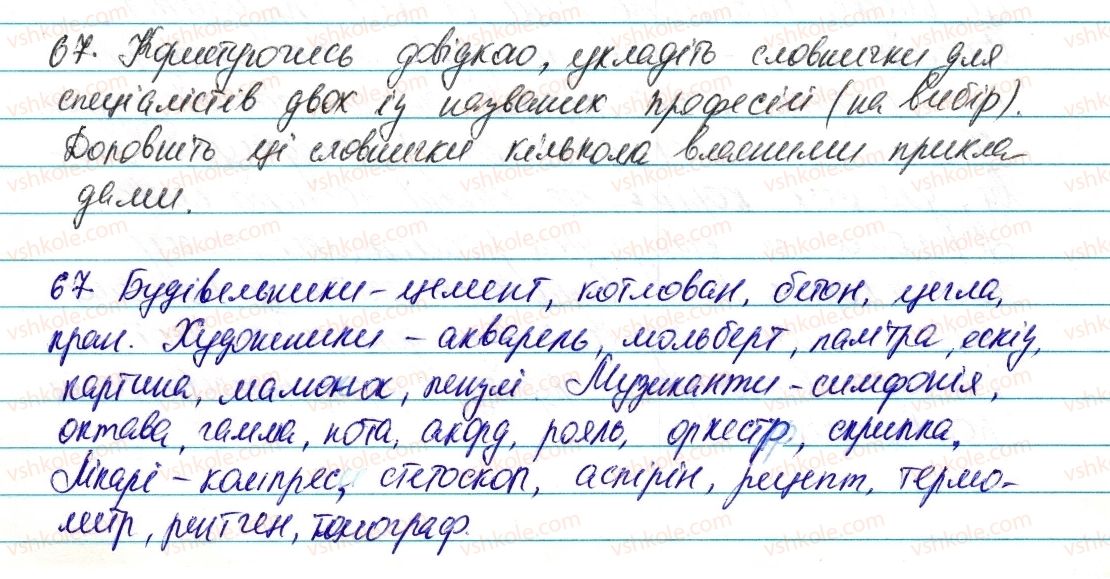 67. Користуючись довідкою, укладіть словнички для
спеціалістів двох із названих професій (на вибір).
Доповніть ці словнички кількома власними прикла-
дами.
67 Будівельники – цемент, котлован, бетон, цегла,
кран. Художники – акварель, мольберт, палітра, ескіз,
картина, малюнок, пензлі. Музиканти – симфонія,
октава, гамма, нота, акорд, рояль, оркестр, скрипка,
Лікарі – компрес, стетоскоп, аспірін, рецепт, термо-
метр, рентген, томограф.